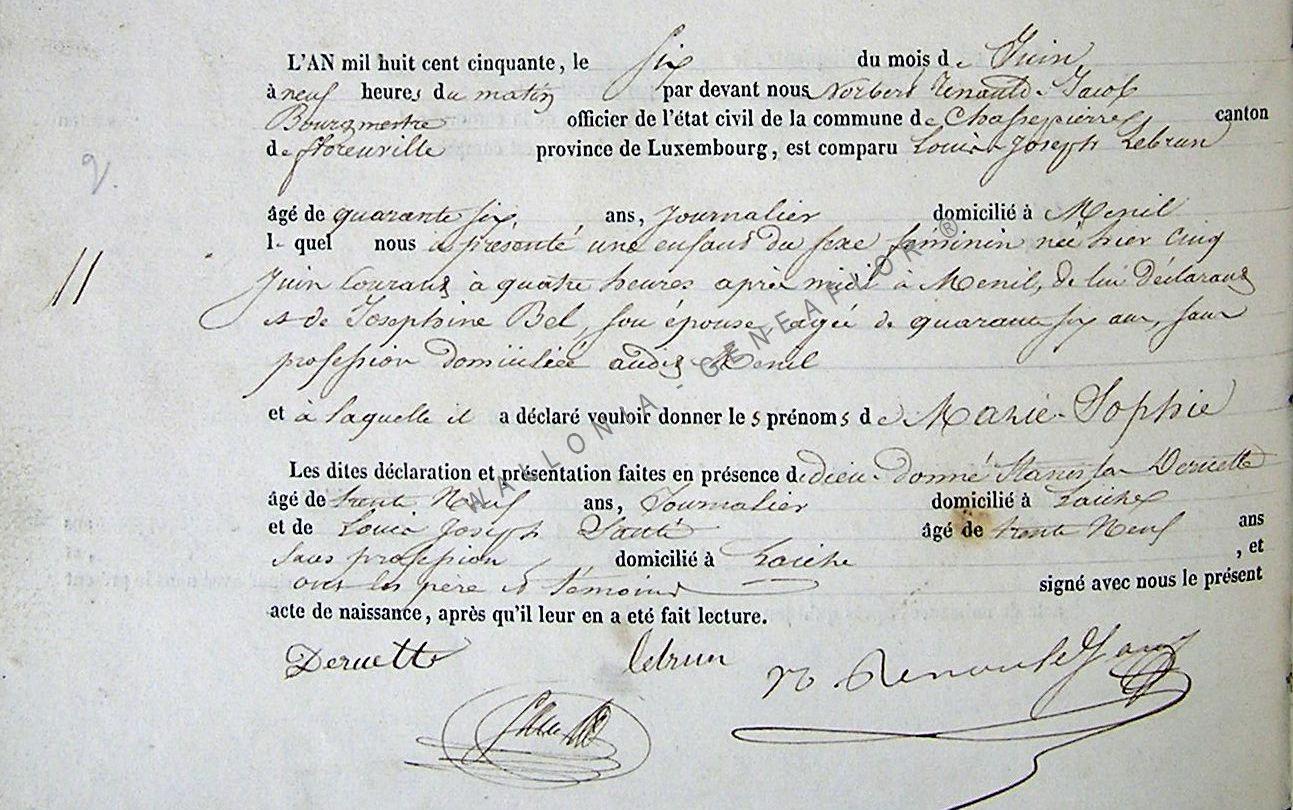 L'AN mil huit cent cinquante, le six du mois de Juin
à neuf heures du matin par devant nous Norbert Renauld Jacob
Bourgmestre officier de l'état civil de la commune de Chassepierre canton
de florenville province de Luxembourg, est comparu Louis Joseph Lebrun
9.
âgé de quarante six ans, Journalier domicilié à Menil
le quel nous a présenté une enfant du sexe féminin née hier cinq
11
Juin Courant à quatre heures après midi à Menil, de lui déclarant
et de Josephine Bel, son épouse, agée de quarante six ans, sans
profession domiciliée audit Menil
et à laquelle il a déclaré vouloir donner les prénoms de Marie-Sophie
Les dites déclaration et présentation faites en présence de dieu-donné Stanislas Deruette
âgé de trente Neuf ans, Journalier domicilié à Laiche
et de Louis Joseph âgé de trente Neuf ans
sans profession domicilié à Laiche , et
ont les père et témoins signé avec nous le présent
acte de naissance, après qu'il leur en a eté fait lecture.
Deruette lebrun
WALLONIA - GENEAFLOR ®